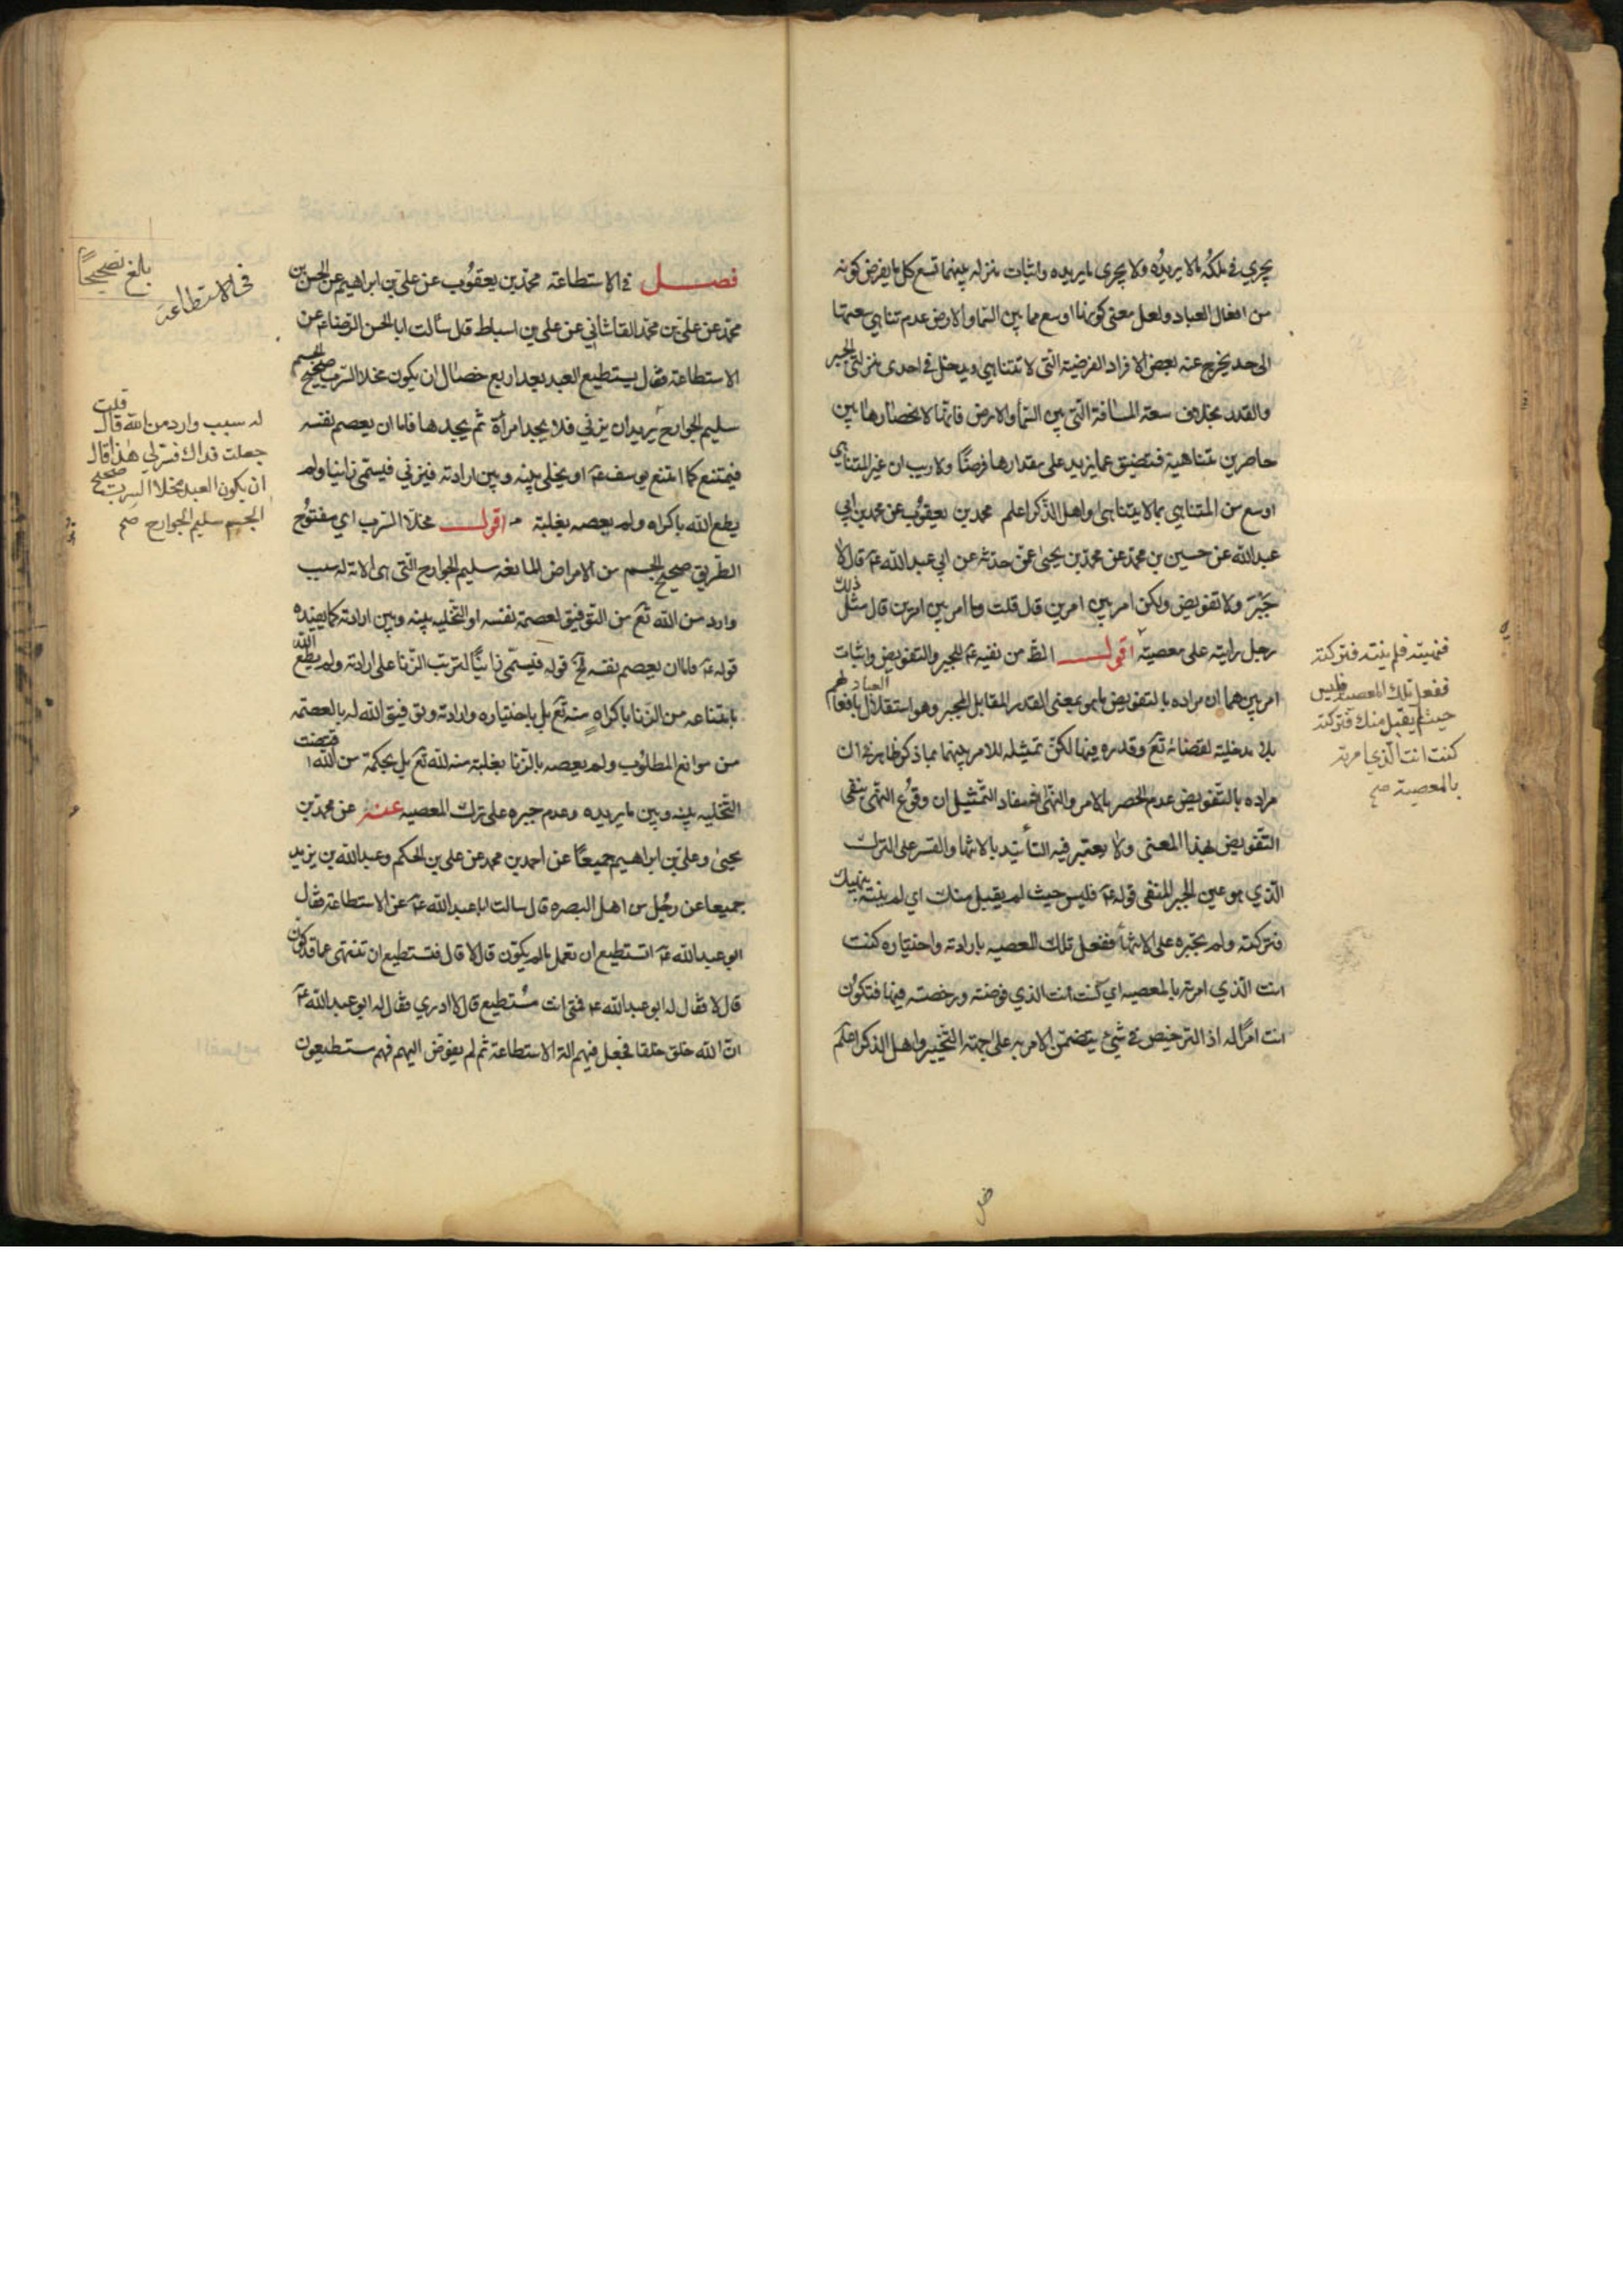 يجري في ملكه ما لا يريده ولا يجري ما يريده واثبات منزله بينهما تسع كل ما يفرض كونه
من افعال العباد ولعل معنى كونها اوسع مما بين السماء والارض عدم تناهي سعتها
الى حد يخرج عنه بعض الافراد الفرضية التي لا تتناهي ويدخل في احدى منزلتي الجبر
والقدر بخلاف سعة المسافة التي بين السماء والارض فانها لانحصارها بين
حاصرين متناهية فتضيق عما يزيد على مقدارها فرضًا ولا ريب ان غير المتناهي
اوسع من المتناهي بما لا يتناهى واهل الذكر اعلم محمد بن يعقوب عن محمد بن ابي
عبدالله عن حسين بن محمد عن محمد بن يحيى عمّن حدثه عن ابي عبدالله عم قال لا
جَبْرَ ولا تفويض ولكن امر بين امرين قال قلت وما امر بين امرين قال مثل ذلك
رجل رايته على معصية اقول الظ من نفيه عم للجبر والتفويض واثبات
امر بينهما ان مراده بالتفويض ما هو بمعنى القدر المقابل للجبر وهو استقلال العباد بافعالهم
بلا مدخلية لقضائه تع وقدره فيها لكن تمثيله للامر بينهما بما ذكر ظاهر في ان
مراده بالتفويض عدم الحصر بالامر والنهى فمفاد التمثيل ان وقوع النهى ينفى
التفويض بهذا المعنى ولا يعتبر فيه التأييد بالانتهاء والقسر على الترك
الذي هو عين الجبر المنفى قوله عم فليس حيث لم يقبل منك اي لم ينته بنهيك
فتركته ولم تجبره على الانتهاء ففعل تلك المعصيه بارادته واختياره كنت
انت الذي امرته بالمعصيه اي كنت انت الذي فوضته ورخصته فيها فتكون
انت امرًا له اذ الترخيص في شيء يتضمن الامر به على جهة التخيير واهل الذكر اعلم
فنهيته فلم ينته فتركته
ففعل تلك المعصية فليس
حيث لم يقبل منك فتركته
كنت انت الذي امرته
بالمعصية صح
فصل في الاستطاعة محمد بن يعقوب عن علي بن ابراهيم عن الحسن بن
محمد عن علي بن محمد القاشاني عن علي بن اسباط قال سألت ابا الحسن الرضا عم عن
الاستطاعة فقال يستطيع العبد بعد اربع خصال ان يكون مخلا السرب صحيح الجسم
سليم الجوارح يريد ان يزني فلا يجد امرأة ثم يجدها فاما ان يعصم نفسه
فيمتنع كما امتنع يوسف عم او يخلى بينه وبين ارادته فيزني فيسمى زانيا ولم
يطع الله باكراه ولم يعصه بغلبة اقول مخلا السرب اي مفتوح
الطريق صحيح الجسم من الامراض المانعة سليم الجوارح التي هى الاته له سبب
وارد من الله تع من التوفيق لعصمة نفسه او التخليه بينه وبين ارادته كما يفيده
قوله عم فاما ان يعصم نفسه الخ قوله فيسمى زانيًا لترتب الزنا على ارادته ولم يطع الله
بامتناعه من الزنا باكراهٍ منه تع بل باختياره وارادته وتوفيق الله له بالعصمه
من موانع المطلوب ولم يعصه بالزنا بغلبة منه لله تع بل بحكمة من الله اقتضت
التخليه بينه وبين ما يريده وعدم جبره على ترك المعصيه عنه عن محمد بن
يحيى وعلي بن ابراهيم جميعًا عن احمد بن محمد عن علي بن الحكم وعبدالله بن يزيد
جميعا عن رجُل من اهل البصره قال سالت ابا عبدالله عم عن الاستطاعة فقال
ابو عبدالله عم اتستطيع ان تعمل ما لم يكوّن قال لا قال فتستطيع ان تنتهى عما قد كون
قال لا فقال له ابو عبدالله عم فمتى انت مُستطيع قال لا ادري فقال له ابو عبدالله عم
انّ الله خلق خلقا فجعل فيهم الة الاستطاعة ثم لم يفوض اليهم فهم مستطيعون
بلغ تصحيحًا
في الاستطاعة
له سبب وارد من الله قال قلت
جعلت فداك فسر لي هذا قال
ان يكون العبد مخلا السرب صحيح
الجسم سليم الجوارح صح